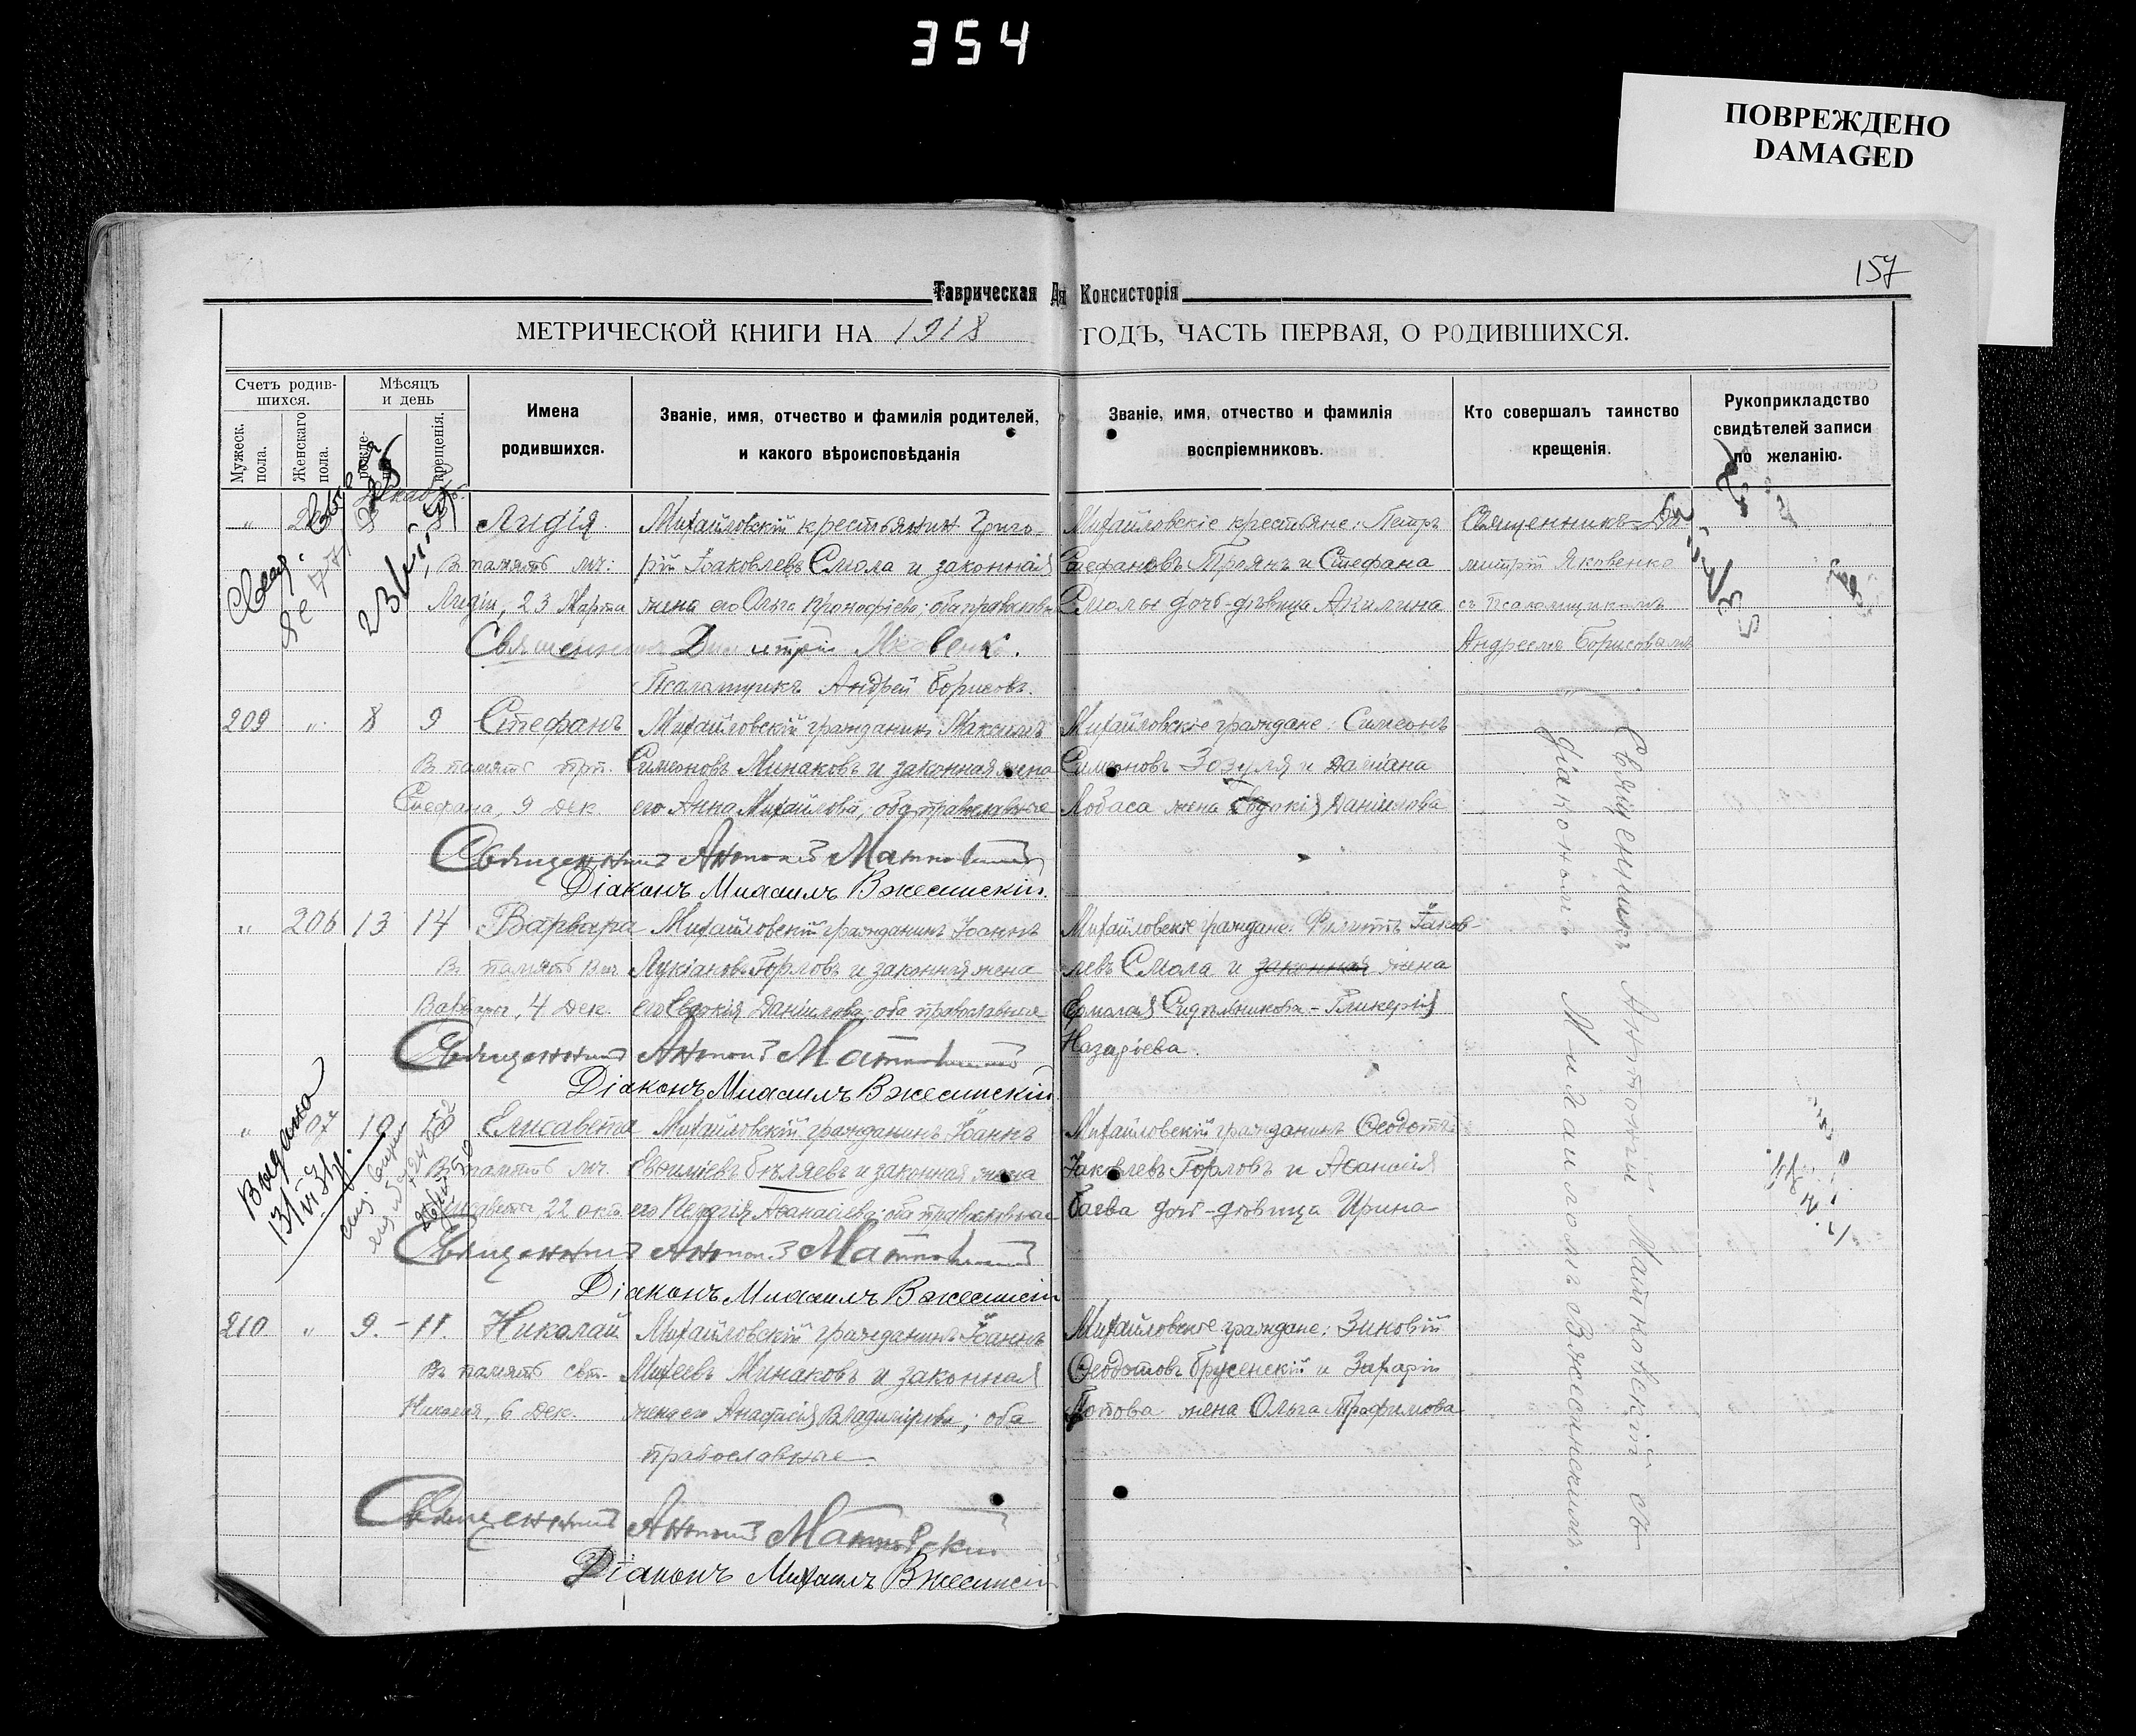 354
ПОВРЕЖДЕНО
DAMAGED
157
Таврическая Дя Консисторія
МЕТРИЧЕСКОЙ КНИГИ НА 1918 ГОДЪ, ЧАСТЬ ПЕРВАЯ, О РОДИВШИХСЯ.
Счетъ родив-
шихся.
Мужеск. пола.
Женскаго пола.
Мѣсяцъ
и день
крещенія.
Имена
родившихся.
Званіе, имя, отчество и фамилія родителей,
и какого вѣроисповѣданія
Званіе, имя, отчество и фамилія
воспріемниковъ.
Кто совершалъ таинство
крещенія.
Рукоприкладство
свидѣтелей записи
по желанію.
Декабрь.
" 8 Лидія
В память мч:
Лидіи, 23 Марта
Михайловскій крестьянин Григо-
рій Іаковлевъ Смола и законная
жена его Ольга
Михайловскіе крестьяне: Петръ
Стефановъ Троянъ и Стефана
Смолы дочь-дѣвица Акилина
Священникъ Ди-
митрій Яковенко
съ Псаломщикомъ
Андреемъ Борисовымъ
Священникъ Димитрій Яковенко.
Псаломщикъ Андрей Борисовъ.
209 " 8 9 Стефанъ
Въ память прп.
Стефана, 9 дек
Михайловскій гражданинъ Максимъ
Симеоновъ Минаковъ и законная жена
его Анна Михайлова; оба православные
Михайловскіе граждане: Симеонъ
Симеоновъ Зозуля и Даміана
Лобаса жена Евдокія Даніилова
Священникъ Антоній Матковскій
Діаконъ Михаилъ Вжесинскій.
" 206 13 14 Варвара
Въ память вмч
Варвары, 4 Дек.
Михайловскій гражданинъ Іоаннъ
Лукіановъ Горловъ и законная жена
его Евдокія Даніилова; оба православные
Михайловскіе граждане: Филиппъ Іаков-
левъ Смола и законная жена
Ермолая Сидѣльникова - Гликерія
Назаріева.
Священникъ Антоній Матковскій
Діаконъ Михаилъ Вжесинскій.
Выдано
" 10 Елисавета
В память мч.
Елисаветы, 22 окт.
Михайловскій гражданинъ Іоаннъ
Евфиміевъ Бѣляевъ и законная жена
его Афанасіева; оба православные
Михайловскій гражданинъ Феодотъ
Іаковлевъ Горловъ и Афанасія
Баева дочь-дѣвица Ирина
Священникъ Антоній Матковскій
Діаконъ Михаилъ Вжесинскій
210 " 9. - 11. Николай
Въ память свт.
Николая, 6 Дек.
Михайловскій гражданинъ Іоаннъ
Михеевъ Минаковъ и законная
жена его Анастасія Владимірова; оба
православные.
Михайловскіе граждане: Зиновій
Феодотовъ Брусенскій и Захарія
Попова жена Ольга Трофимова
Священникъ Антоній Матковскій
Діаконъ Михаилъ Вжесинскій
Священникъ Антоній Матковскій съ
діакономъ Михаиломъ Вжесинскимъ.